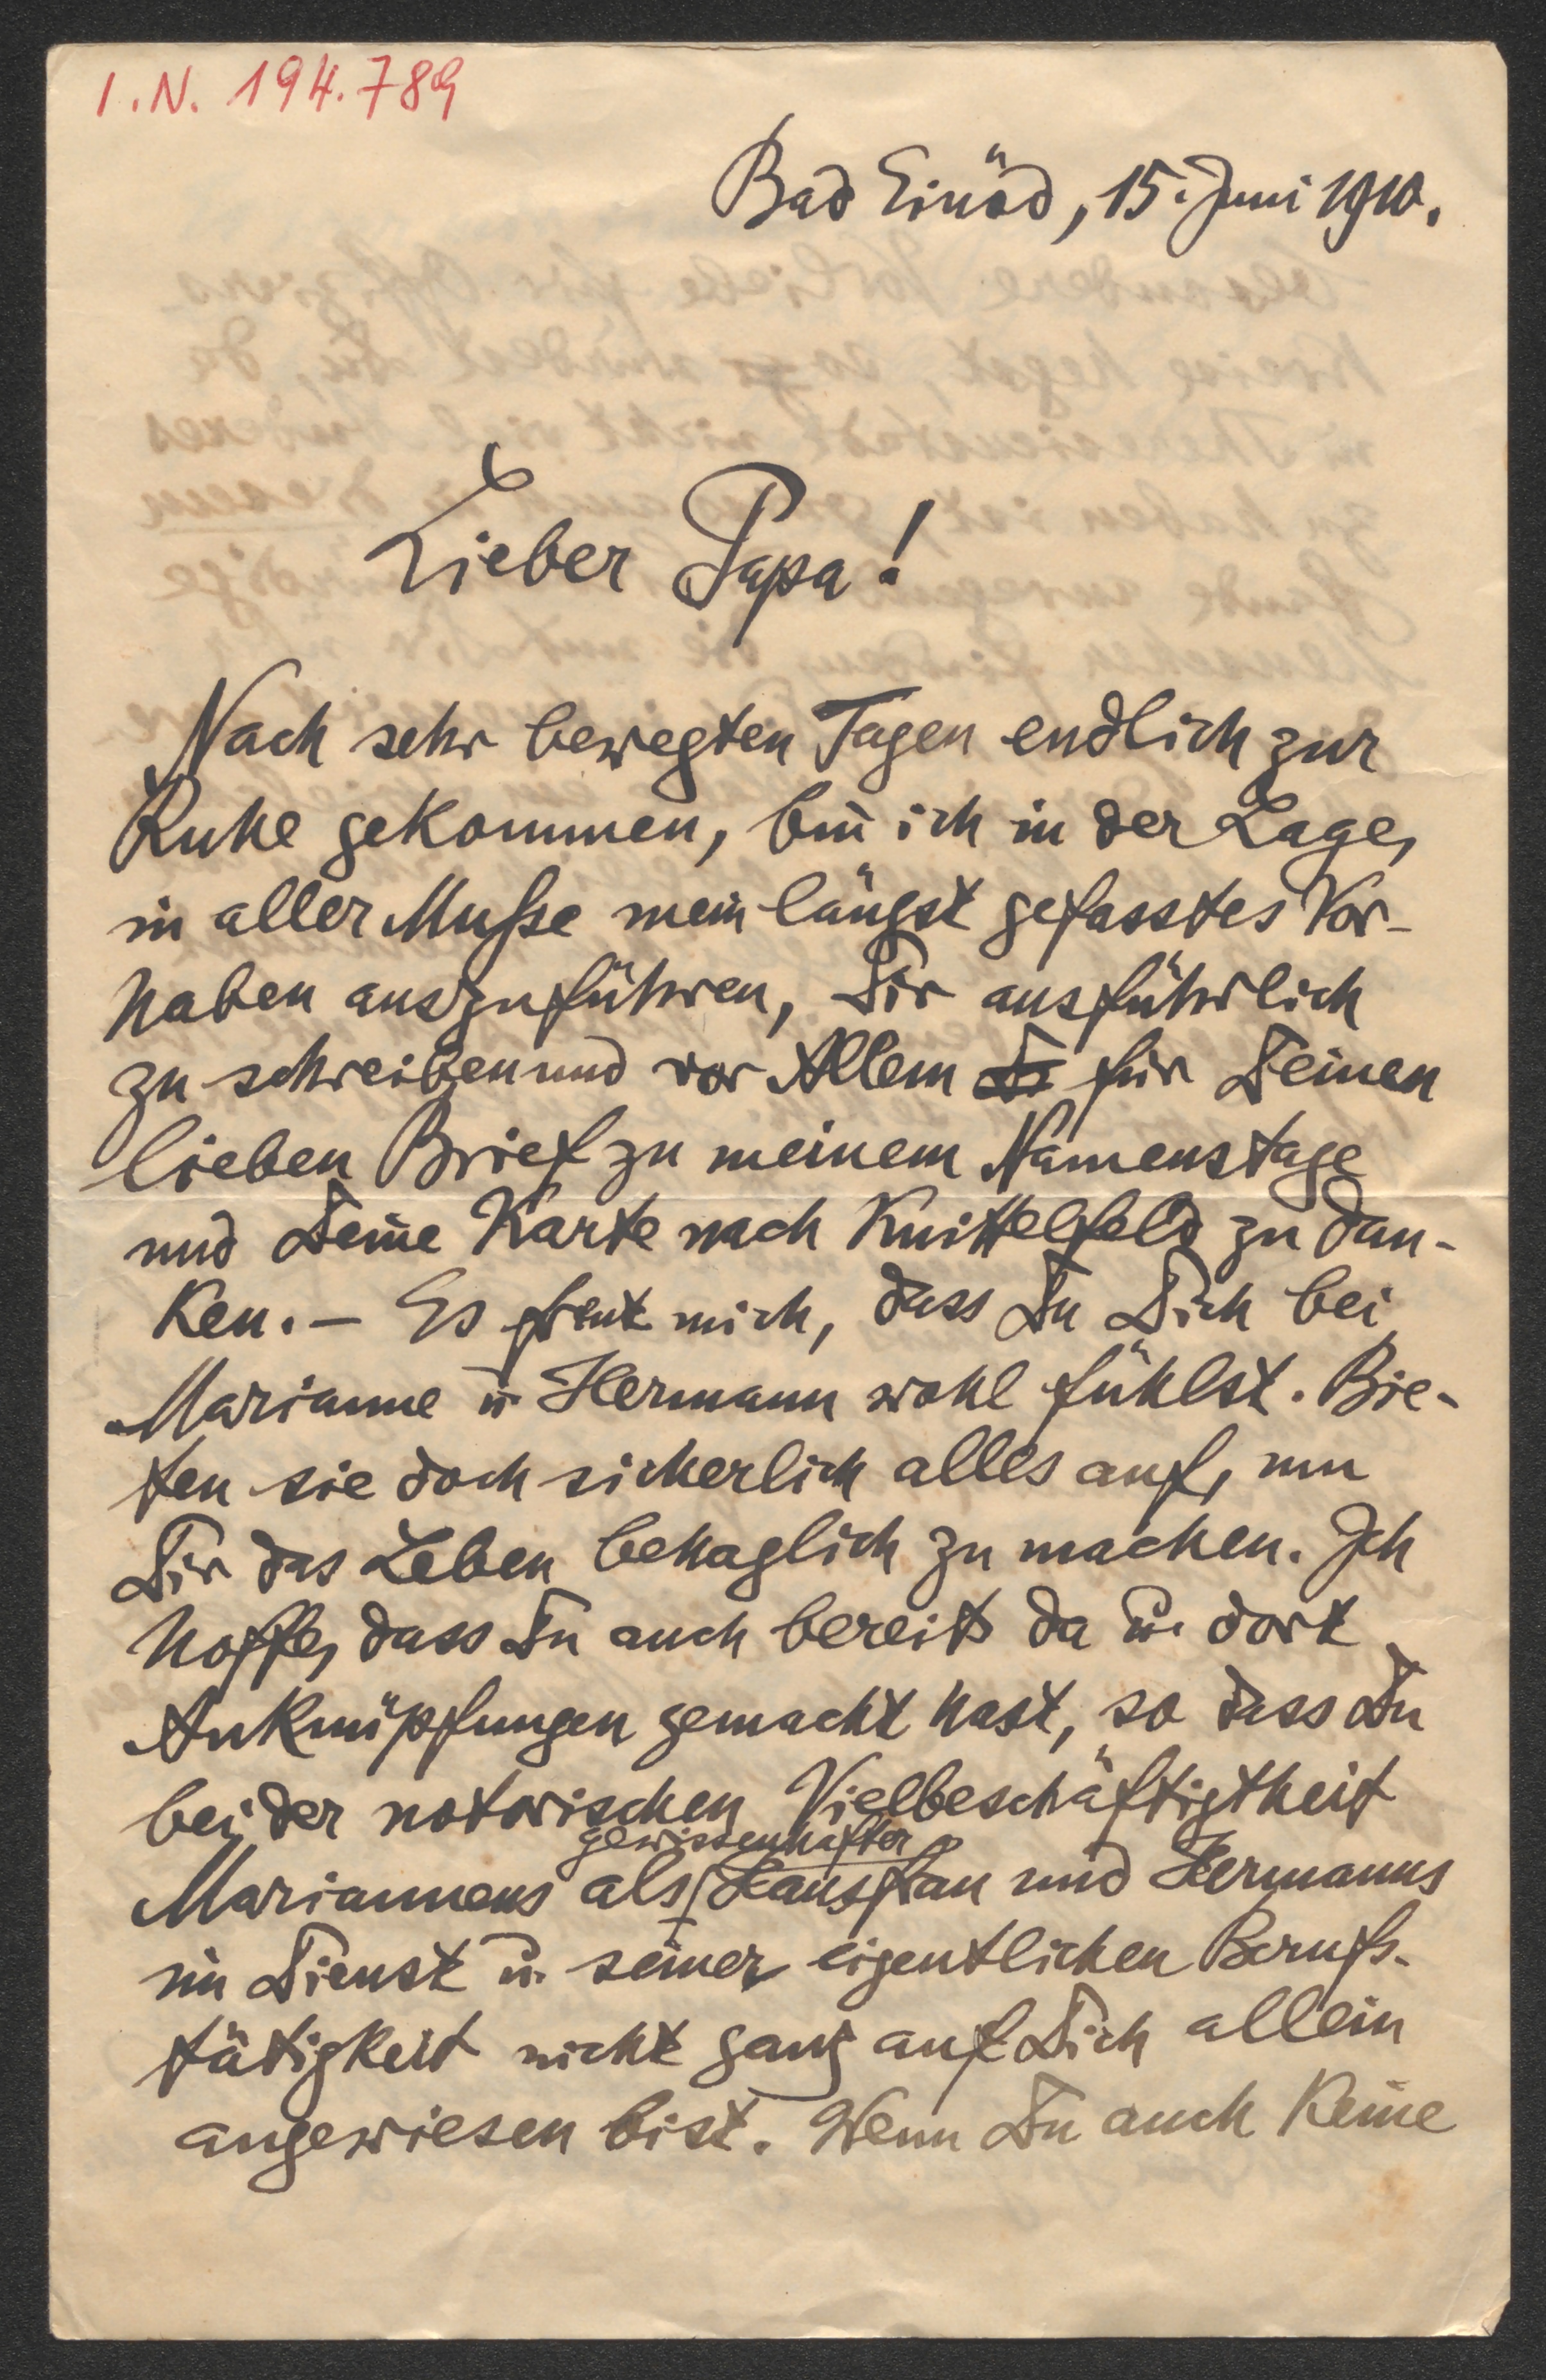 I.N. 194.789
Bad Einöd, 15. Juni 1910.
Lieber Papa!
Nach sehr bewegten Tagen endlich zur
Ruhe gekommen, bin ich in der Lage,
in aller Muße mein längst gefasstes Vor-
haben auszuführen, Dir ausführlich
zu schreiben und vor Allem für Deinen
lieben Brief zu meinem Namenstage
und Deine Karte nach Knittelfeld zu dan-
ken. – Es freut mich, dass Du Dich bei
Marianne u. Hermann wohl fühlst. Bie-
ten sie doch sicherlich alles auf, um
Dir das Leben behaglich zu machen. Ich
hoffe, dass Du auch bereits da u. dort
Anknüpfungen gemacht hast, so dass Du
bei der notorischen Vielbeschäftigtheit
gewissenhafter
Mariannens als Hausfrau und Hermanns
im Dienst u. seiner eigentlichen Berufs-
tätigkeit nicht ganz auf Dich allein
angewiesen bist. Wenn Du auch keine